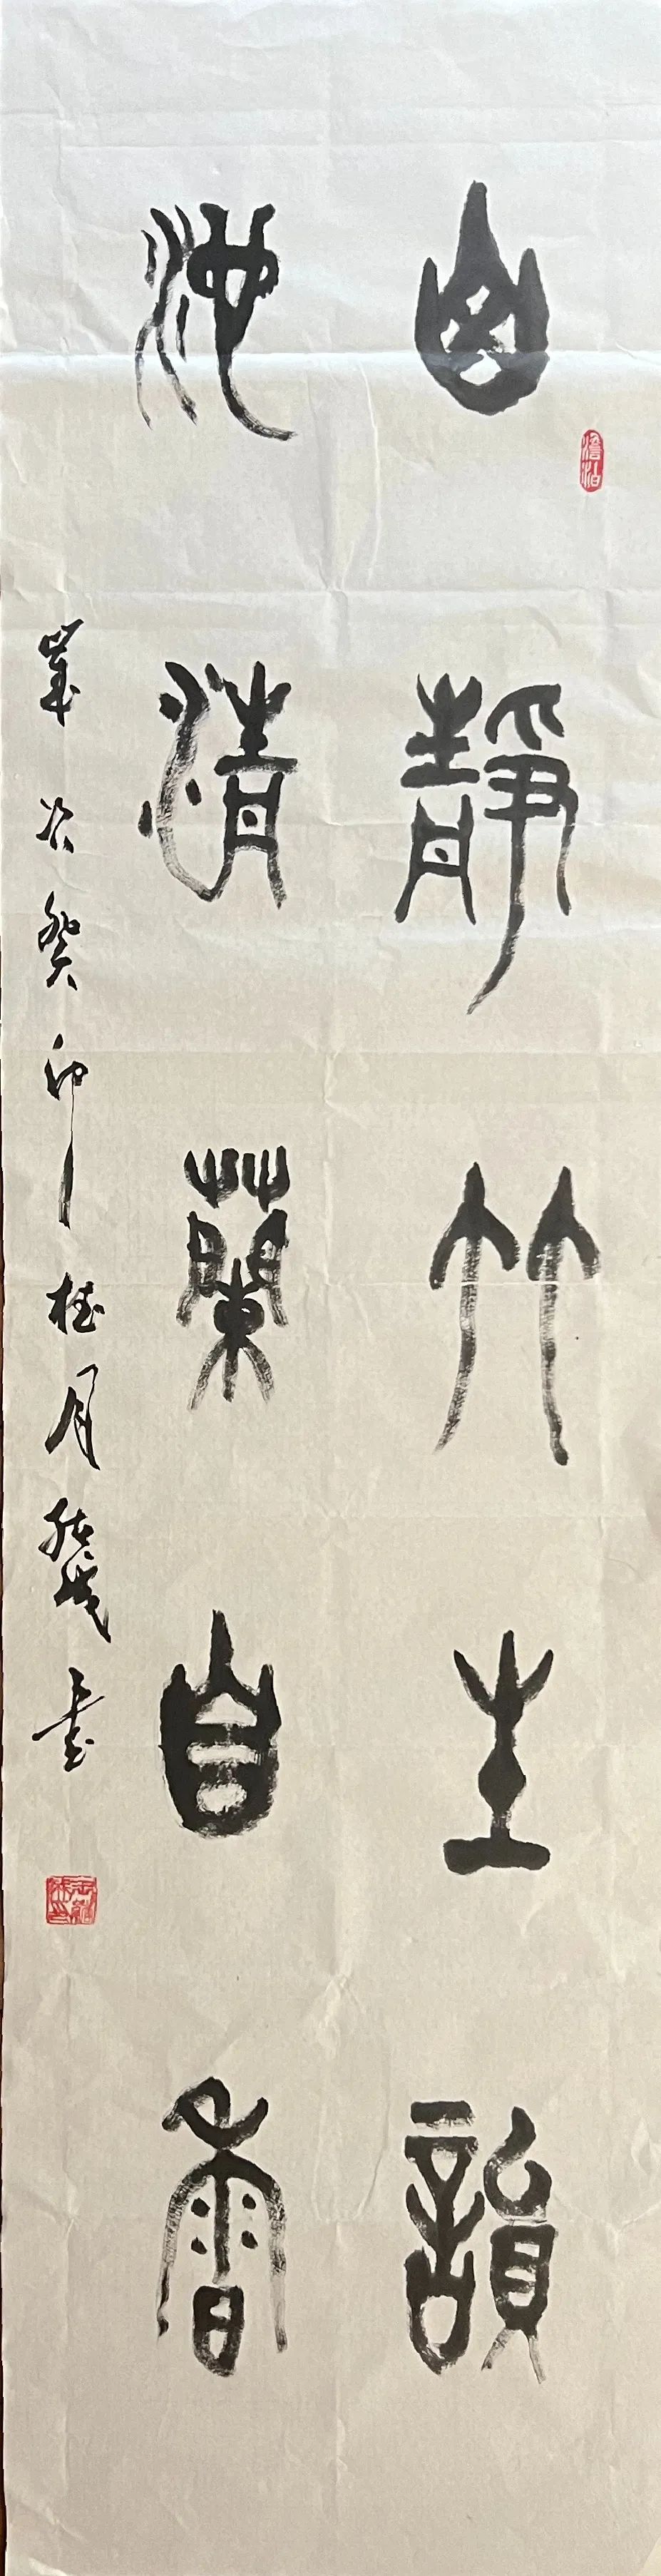 幽靜竹生韻
池清蘭自香
歲次癸卯桂月 書
澹泊